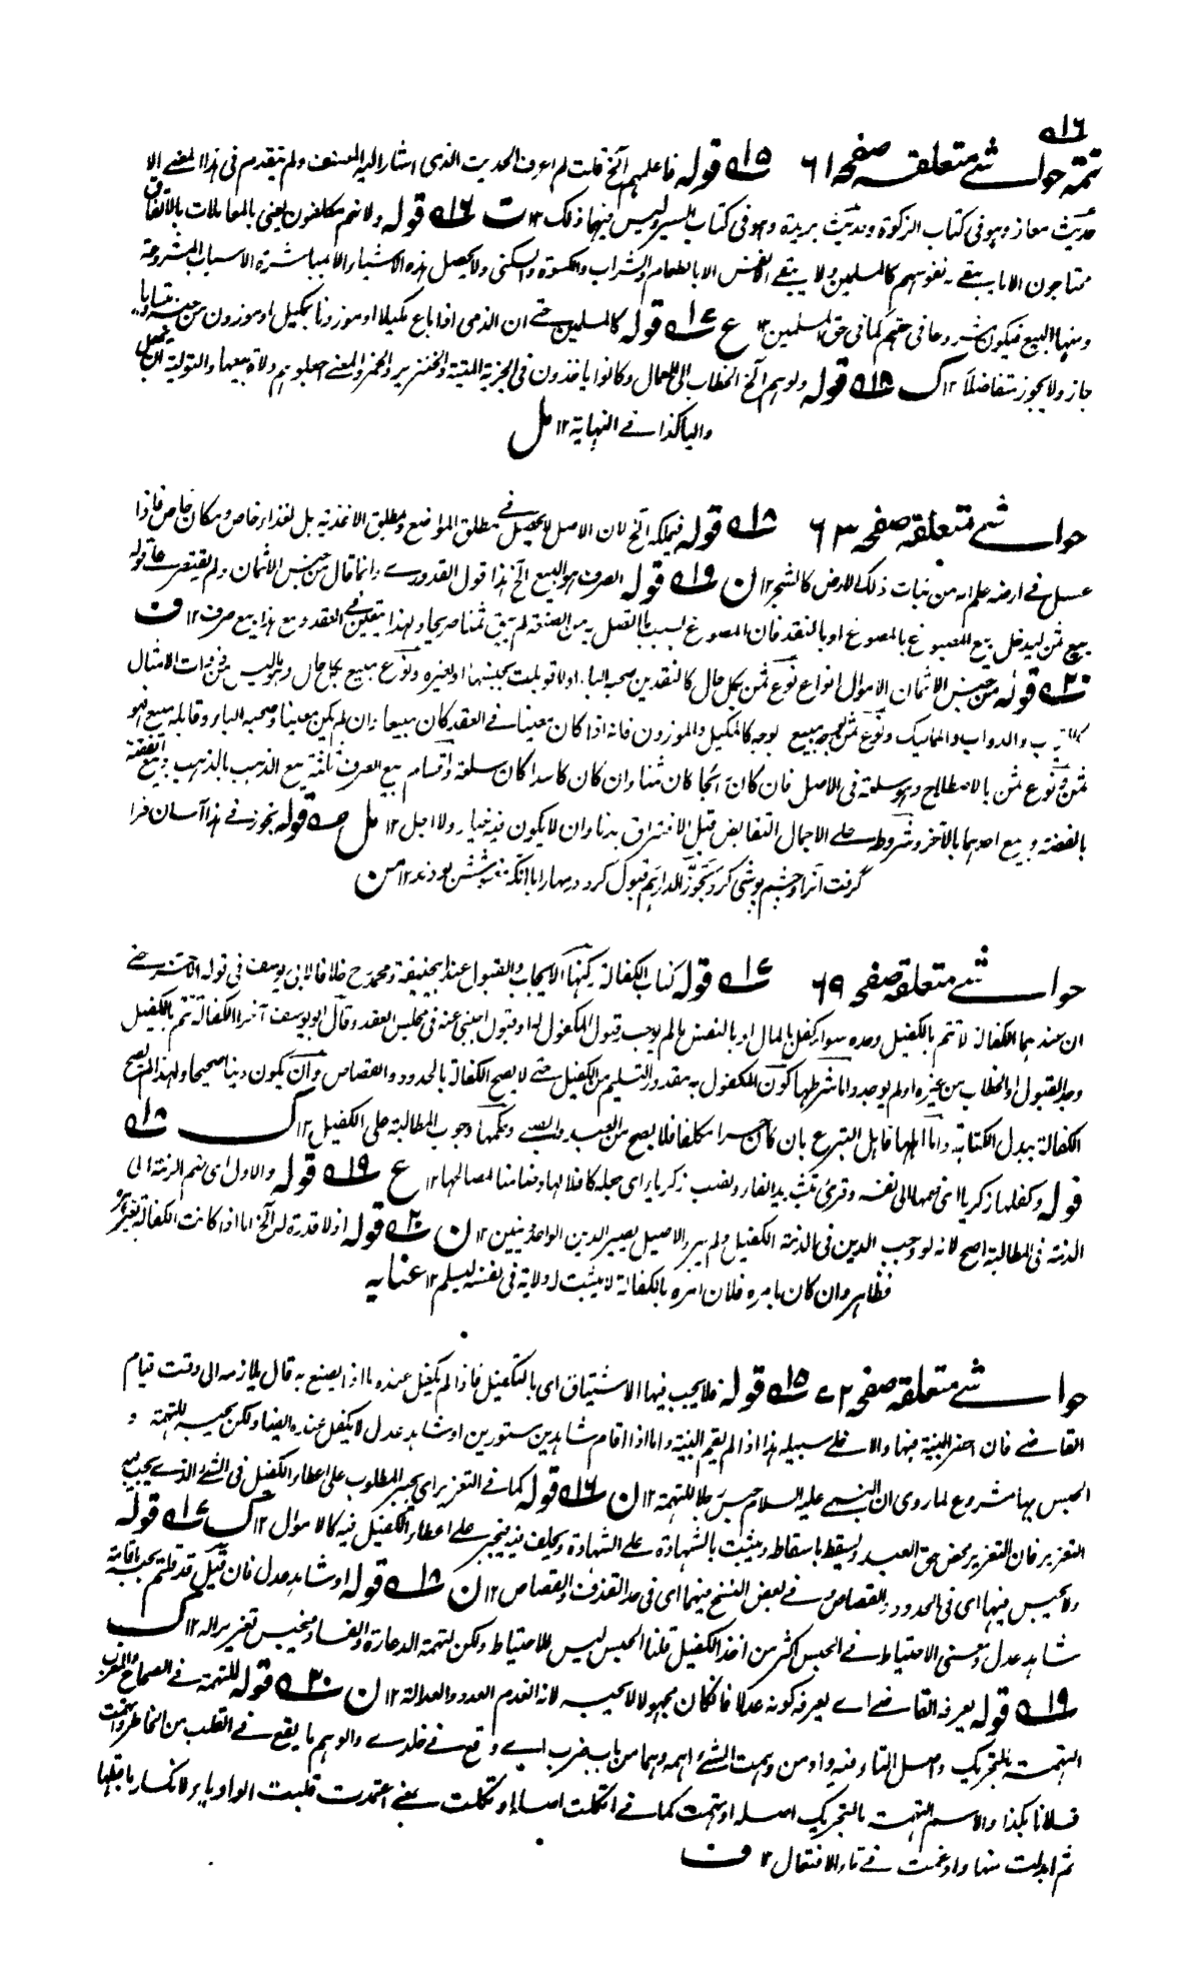 ۵۱۶
تتمہ حواشی متعلقہ صفحہ ۶۱ ۱۵ قولہ فاعلمہم آلخ قلت لم اعرف الحدیث الذی اشار الیہ المصنف ولم یتقدم فی ہذا المعنی الا
حدیث معاذ وہو فی کتاب الزکوۃ وحدیث بریدۃ وہو فی کتاب السیر ولیس فیہما ذلک ۱۲ ت ۱۶ قولہ ولانہم مکلفون یعنی بالمعاملات بالاتفاق
محتاجون الی ما یبقی بہ نفوسہم کالمسلمین ولا یبقی الانفس الا بالطعام والشراب والکسوۃ والسکنی ولا یحصل ہذہ الاشیاء الا بمباشرۃ الاسباب المشروعۃ
ومنہا البیع فیکون مشروعا فی حقہم کما فی حق المسلمین ۱۲ ع ۱۷ قولہ کالمسلمین حتی ان الذمی اذا باع مکیلا او موزونا بمکیل او موزون من جنسہ متساویا
جاز ولا یجوز متفاضلا ۱۲ ک ۱۸ قولہ ولوہم آلخ الخطاب الی العمال وکانوا یاخذون فی الجزیۃ المیتۃ والخنزیر والخمر والمعنی اجعلوہم ولاۃ بیعہا والتولیۃ ان یجعل
والیا کذا فی النہایۃ ۱۲ مل
حواشی متعلقہ صفحہ ۶۳ ۱۸ قولہ فیملکہ آلخ لان الاصل لا یحصل فی مطلق المواضع ومطلق الاغذیۃ بل لغذاء خاص ومکان خاص فاذا
عسل فی ارضہ علم انہ من نبات ذلک الارض کالشجر ۱۲ ن ۱۹ قولہ الصرف ہو البیع آلخ ہذا قول القدوری وانما قال من جنس الاثمان ولم یقتصر علی قولہ
بیع ثمن لیدخل بیع المصوغ بالمصوغ او بالنقد فان المصوغ بسبب ما اتصل بہ من الصنعۃ لم یبق ثمنا صریحا ولہذا یتعین فی العقد ومع ہذا بیع صرف ۱۲ ف
۲۰ قولہ من جنس الاثمان الاموال انواع نوع ثمن بکل حال کالنقدین صحبہ الباء اولا قوبلت بجنسہا او لغیرہ ونوع مبیع بکل حال وہو لیس من ذوات الامثال
کالثیاب والدواب والممالیک ونوع ثمن بوجہ مبیع بوجہ کالمکیل والموزون فانہ اذا کان معینا فی العقد کان مبیعا وان لم یکن معینا وصحبہ الباء وقابلہ مبیع فہو
ثمن ونوع ثمن بالاصطلاح وہو سلعۃ فی الاصل فان کان رائجا کان ثمنا وان کان کاسدا کان سلعۃ واقسام بیع الصرف ثلثۃ بیع الذہب بالذہب وبیع الفضۃ
بالفضۃ وبیع احدہما بالآخر وشروطہ علی الاجمال التقابض قبل الافتراق بدنا وان لا یکون فیہ خیار ولا اجل ۱۲ مل قولہ تجوز فی ہذا آسان فرا
گرفت آنرا وچشم پوشی کرد وتجوز الدراہم قبول کرد درمہا را باآنکہ ۱۲ من
حواشی متعلقہ صفحہ ۶۹ ۱۷ قولہ کتاب الکفالۃ رکنہا الایجاب والقبول عند ابیحنیفۃ ومحمد رح خلافا لابی یوسف فی قولہ الآخر حتی
ان عندہما الکفالۃ لا تتم بالکفیل وحدہ سواء کفل بالمال او بالنفس ما لم یوجد قبول المکفول لہ او قبول اجنبی عنہ فی مجلس العقد وقال ابو یوسف آخرا الکفالۃ تتم بالکفیل
وجد القبول او الخطاب من غیرہ او لم یوجد واما شرطہا کون المکفول بہ مقدور التسلیم من الکفیل حتی لا یصح الکفالۃ بالحدود والقصاص وان یکون دینا صحیحا ولہذا لم یصح
الکفالۃ ببدل الکتابۃ واما اہلہا فاہل التبرع بان کان حرا مکلفا فلا یصح من العبد والصبی وحکمہا وجوب المطالبۃ علی الکفیل ۱۲ ک ۱۸
قولہ وکفلہا زکریا ای ضمہا الی نفسہ وقرئ بتشدید الفاء ونصب زکریاء ای جعلہ کافلا لہا وضامنا لمصالحہا ۱۲ ع ۱۹ قولہ والاول ای ضم الذمۃ الی
الذمۃ فی المطالبۃ اصح لانہ لو وجب الدین فی الذمۃ الکفیل ولم یبر والاصیل یصیر الدین الواحد دینین ۱۲ ن ۲۰ قولہ اذ لا قدرۃ لہ آلخ اما اذا کانت الکفالۃ بغیر امرہ
فظاہر وان کان بامرہ فلان امرہ بالکفالۃ لا یثبت لہ ولایۃ فی نفسہ لیسلم ۱۲ عنایہ
حواشی متعلقہ صفحہ ۷۲ ۱۵ قولہ فلا یجب فیہا الاستیثاق ای بالتکفیل فاذا لم یکفل عندہ ماذا یصنع بہ قال یلازمہ الی وقت قیام
القاضی فان احضر البینۃ فبہا والا خلی سبیلہ ہذا اذا لم یقم البینۃ واما اذا اقام شاہدین مستورین او شاہد عدل لا یکفل عندہ ایضا ولکن یحبسہ للتہمۃ و
الحبس بہا مشروع لما روی ان النبی علیہ السلام حبس رجلا للتہمۃ ۱۲ ن ۱۶ قولہ کما فی التعزیر ای یجبر المطلوب علی اعطاء الکفیل فی الشئ الذی یجب فیہ
التعزیر فان التعزیر محض حق العبد ویسقط باسقاطہ ویثبت بالشہادۃ علی الشہادۃ ویحلف فیہ فیجبر علی اعطاء الکفیل فیہ کالاموال ۱۲ ک ۱۷ قولہ
ولا یحبس فیہا ای فی الحدود والقصاص وفی بعض النسخ فیہما ای فی حد القذف والقصاص ۱۲ ن ۱۸ قولہ او شاہد عدل فان قیل قد قلتم یحبسہ باقامۃ
شاہد عدل ومعنی الاحتیاط فی الحبس اکثر من اخذ الکفیل قلنا الحبس لیس للاحتیاط ولکن لتہمۃ الدعارۃ والفساد فیحبس تعزیرا لہ ۱۲ ک
۱۹ قولہ یعرفہ القاضی ای یعرفہ کونہ عدلا فان کان مجہولا لا یحبسہ لانہ انعدم العدد والعدالۃ ۱۲ ن ۲۰ قولہ للتہمۃ فی الصحاح والمغرب
التہمۃ بالتحریک واصل التاء فیہ واو من وہمت الشئ اہمہ وہما من باب ضرب ای وقع فی خلدی والوہم ما یقع فی القلب من الخاطر واتہمت
فلانا بکذا والاسم التہمۃ بالتحریک اصلہ اوتہمت کما فی اتکلت اصلہا اوتکلت بمعنی اعتمدت قلبت الواو یاء لانکسار ما قبلہا
ثم ابدلت منہا وادغمت فی تاء الافتعال ۱۲ ف